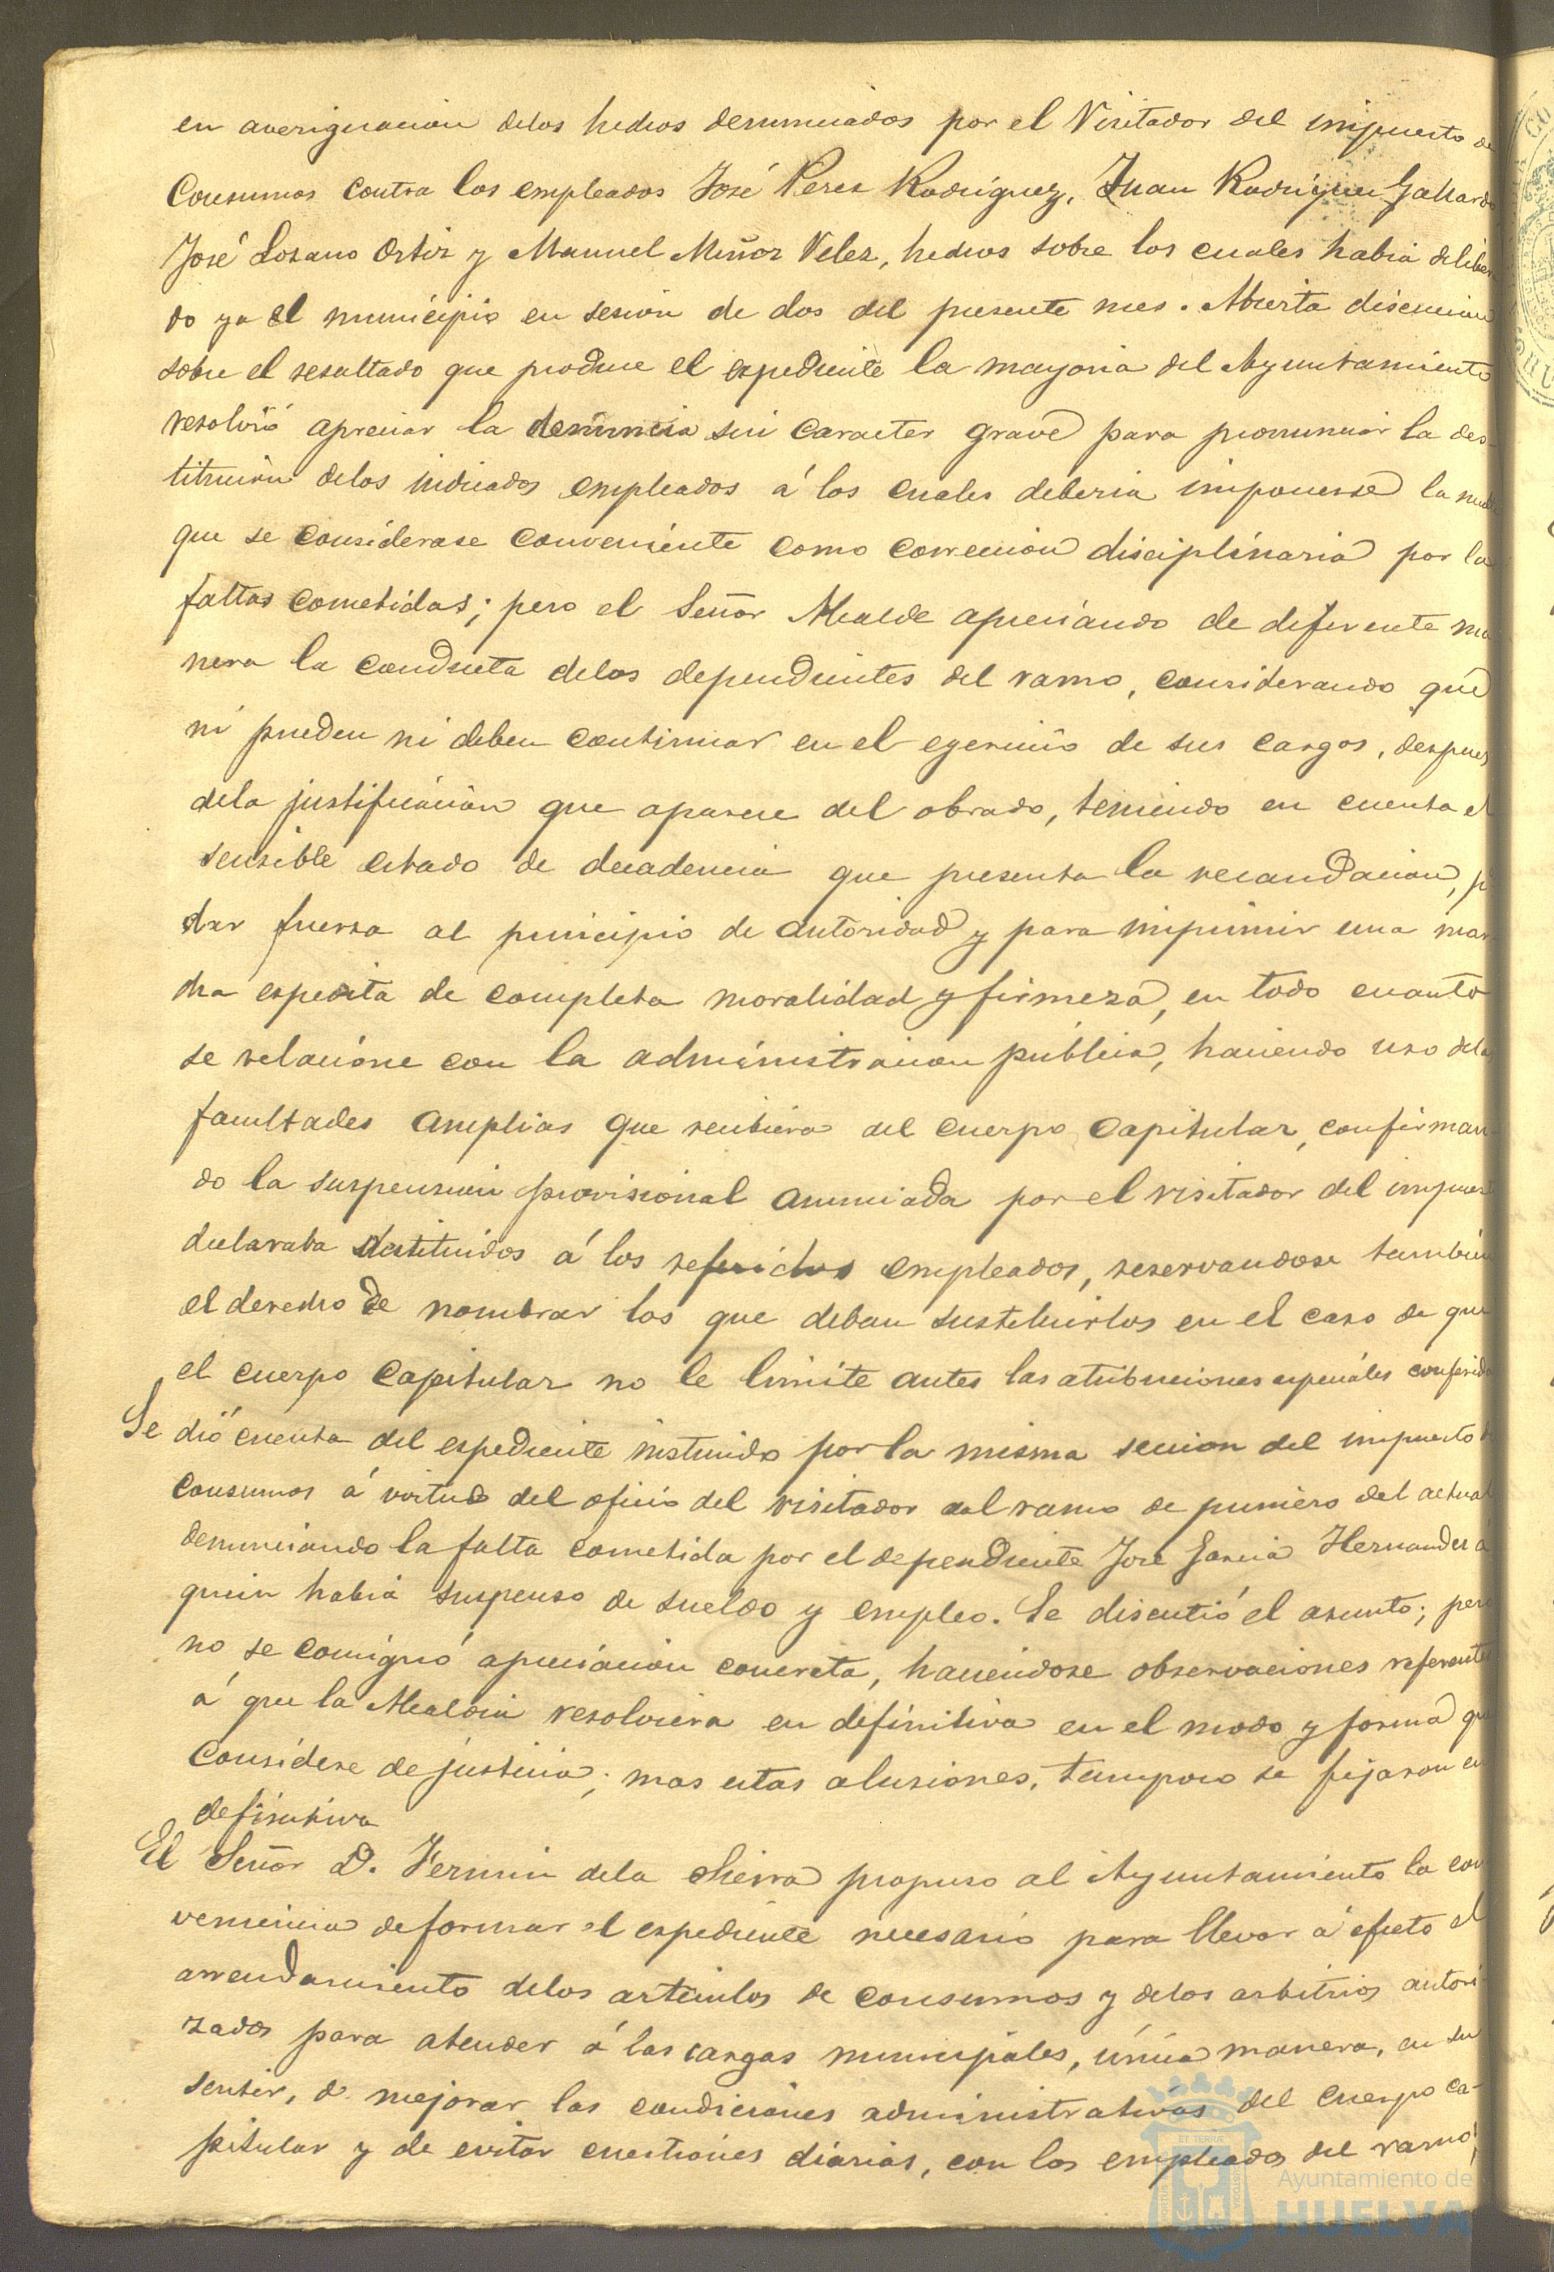 en averiguacion delos hechos denunciados por el Visitador del impuesto de
Consumos contra los empleados José Perez Rodriguez, Juan Rodriguez Gallardo
José Lozano Ortiz y Manuel Muñoz Velez, hechos sobre los cuales habia delibera
do ya el municipio en sesion de dos del presente mes. Abierta discusion
sobre el resultado que produce el espediente la mayoria del Ayuntamiento
resolvió apreciar la denuncia sin caracter grave para pronunciar la des-
titucion delos indicados empleados á los cuales deberia imponerse la multa
que se considerase conveniente como correccion disciplinaria por la
faltas cometidas; pero el Señor Alcalde apreciando de diferente ma
nera la conducta delos dependientes del ramo, considerando que
ni pueden ni deben continuar en el egercicio de sus cargos, despues
dela justificacion que aparece del obrado, teniendo en cuenta el
sensible estado de decadencia que presenta la recaudacion, p
dar fuerza al principio de autoridad y para imprimir una mar
cha espedita de completa moralidad y firmeza, en todo cuanto
se relacione con la administracion pública, haciendo uso dela
facultades amplias que recibiera del cuerpo capitular, confirman
do la suspension provisional anunciada por el visitador del impuest
declaraba destituidos á los referidos empleados, reservandose tambien
el derecho de nombrar los que deban sustituirlos en el caso de que
el cuerpo capitular no le limite antes las atribuciones especiales conferida
Se dió cuenta del espediente instruido por la misma seccion del impuesto d
consumos á virtud del oficio del visitador del ramo de primero del actual
denunciando la falta cometida por el dependiente José Garcia Hernandez á
quien habia suspenso de sueldo y empleo. Se discutió el asunto; pero
no se consignó apreciacion concreta, haciendose observaciones referentes
á que la Alcaldia resolviera en definitiva en el modo y forma que
considere de justicia; mas estas alusiones, tampoco se fijaron en
definitiva
El Señor D. Fermin dela Sierra propuso al Ayuntamiento la con
veniencia de formar el espediente necesario para llevar á efecto el
arrendamiento delos articulos de consumos y delos arbitrios autori-
zados para atender á las cargas municipales, única manera, en su
sentir, de mejorar las condiciones administrativas del cuerpo ca-
pitular y de evitar cuestiones diarias, con los empleados del ramo,
Ayuntamiento de
HUELVA